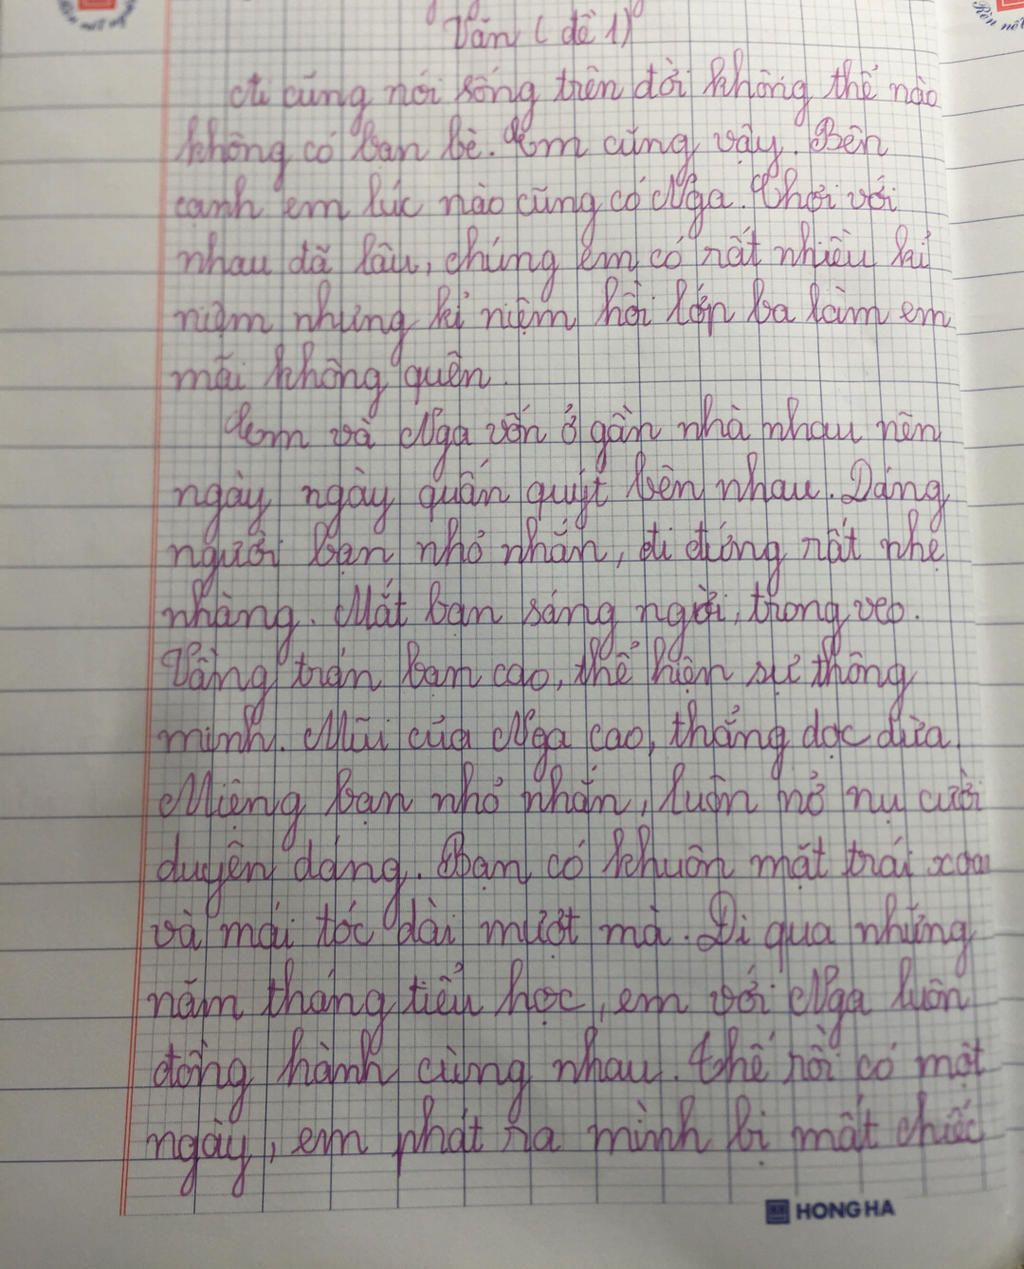 Văn (đề 1)
Ai cũng nói sống trên đời không thể nào
không có bạn bè. Em cũng vậy. Bên
cạnh em lúc nào cũng có Nga. Chơi với
nhau đã lâu, chúng em có rất nhiều kỉ
niệm nhưng kỉ niệm hồi lớp ba làm em
mãi không quên.
Em và Nga vốn ở gần nhà nhau nên
ngày ngày quấn quýt bên nhau. Dáng
người bạn nhỏ nhắn, đi đứng rất nhẹ
nhàng. Mắt bạn sáng ngời, trong veo.
Vầng trán bạn cao, thể hiện sự thông
minh. Mũi của Nga cao, thẳng dọc dừa.
Miệng bạn nhỏ nhắn, luôn nở nụ cười
duyên dáng. Bạn có khuôn mặt trái xoan
và mái tóc dài mượt mà. Đi qua những
năm tháng tiểu học, em với Nga luôn
đồng hành cùng nhau. Thế rồi có một
ngày, em phát ra mình bị mất chiếc
HONG HA